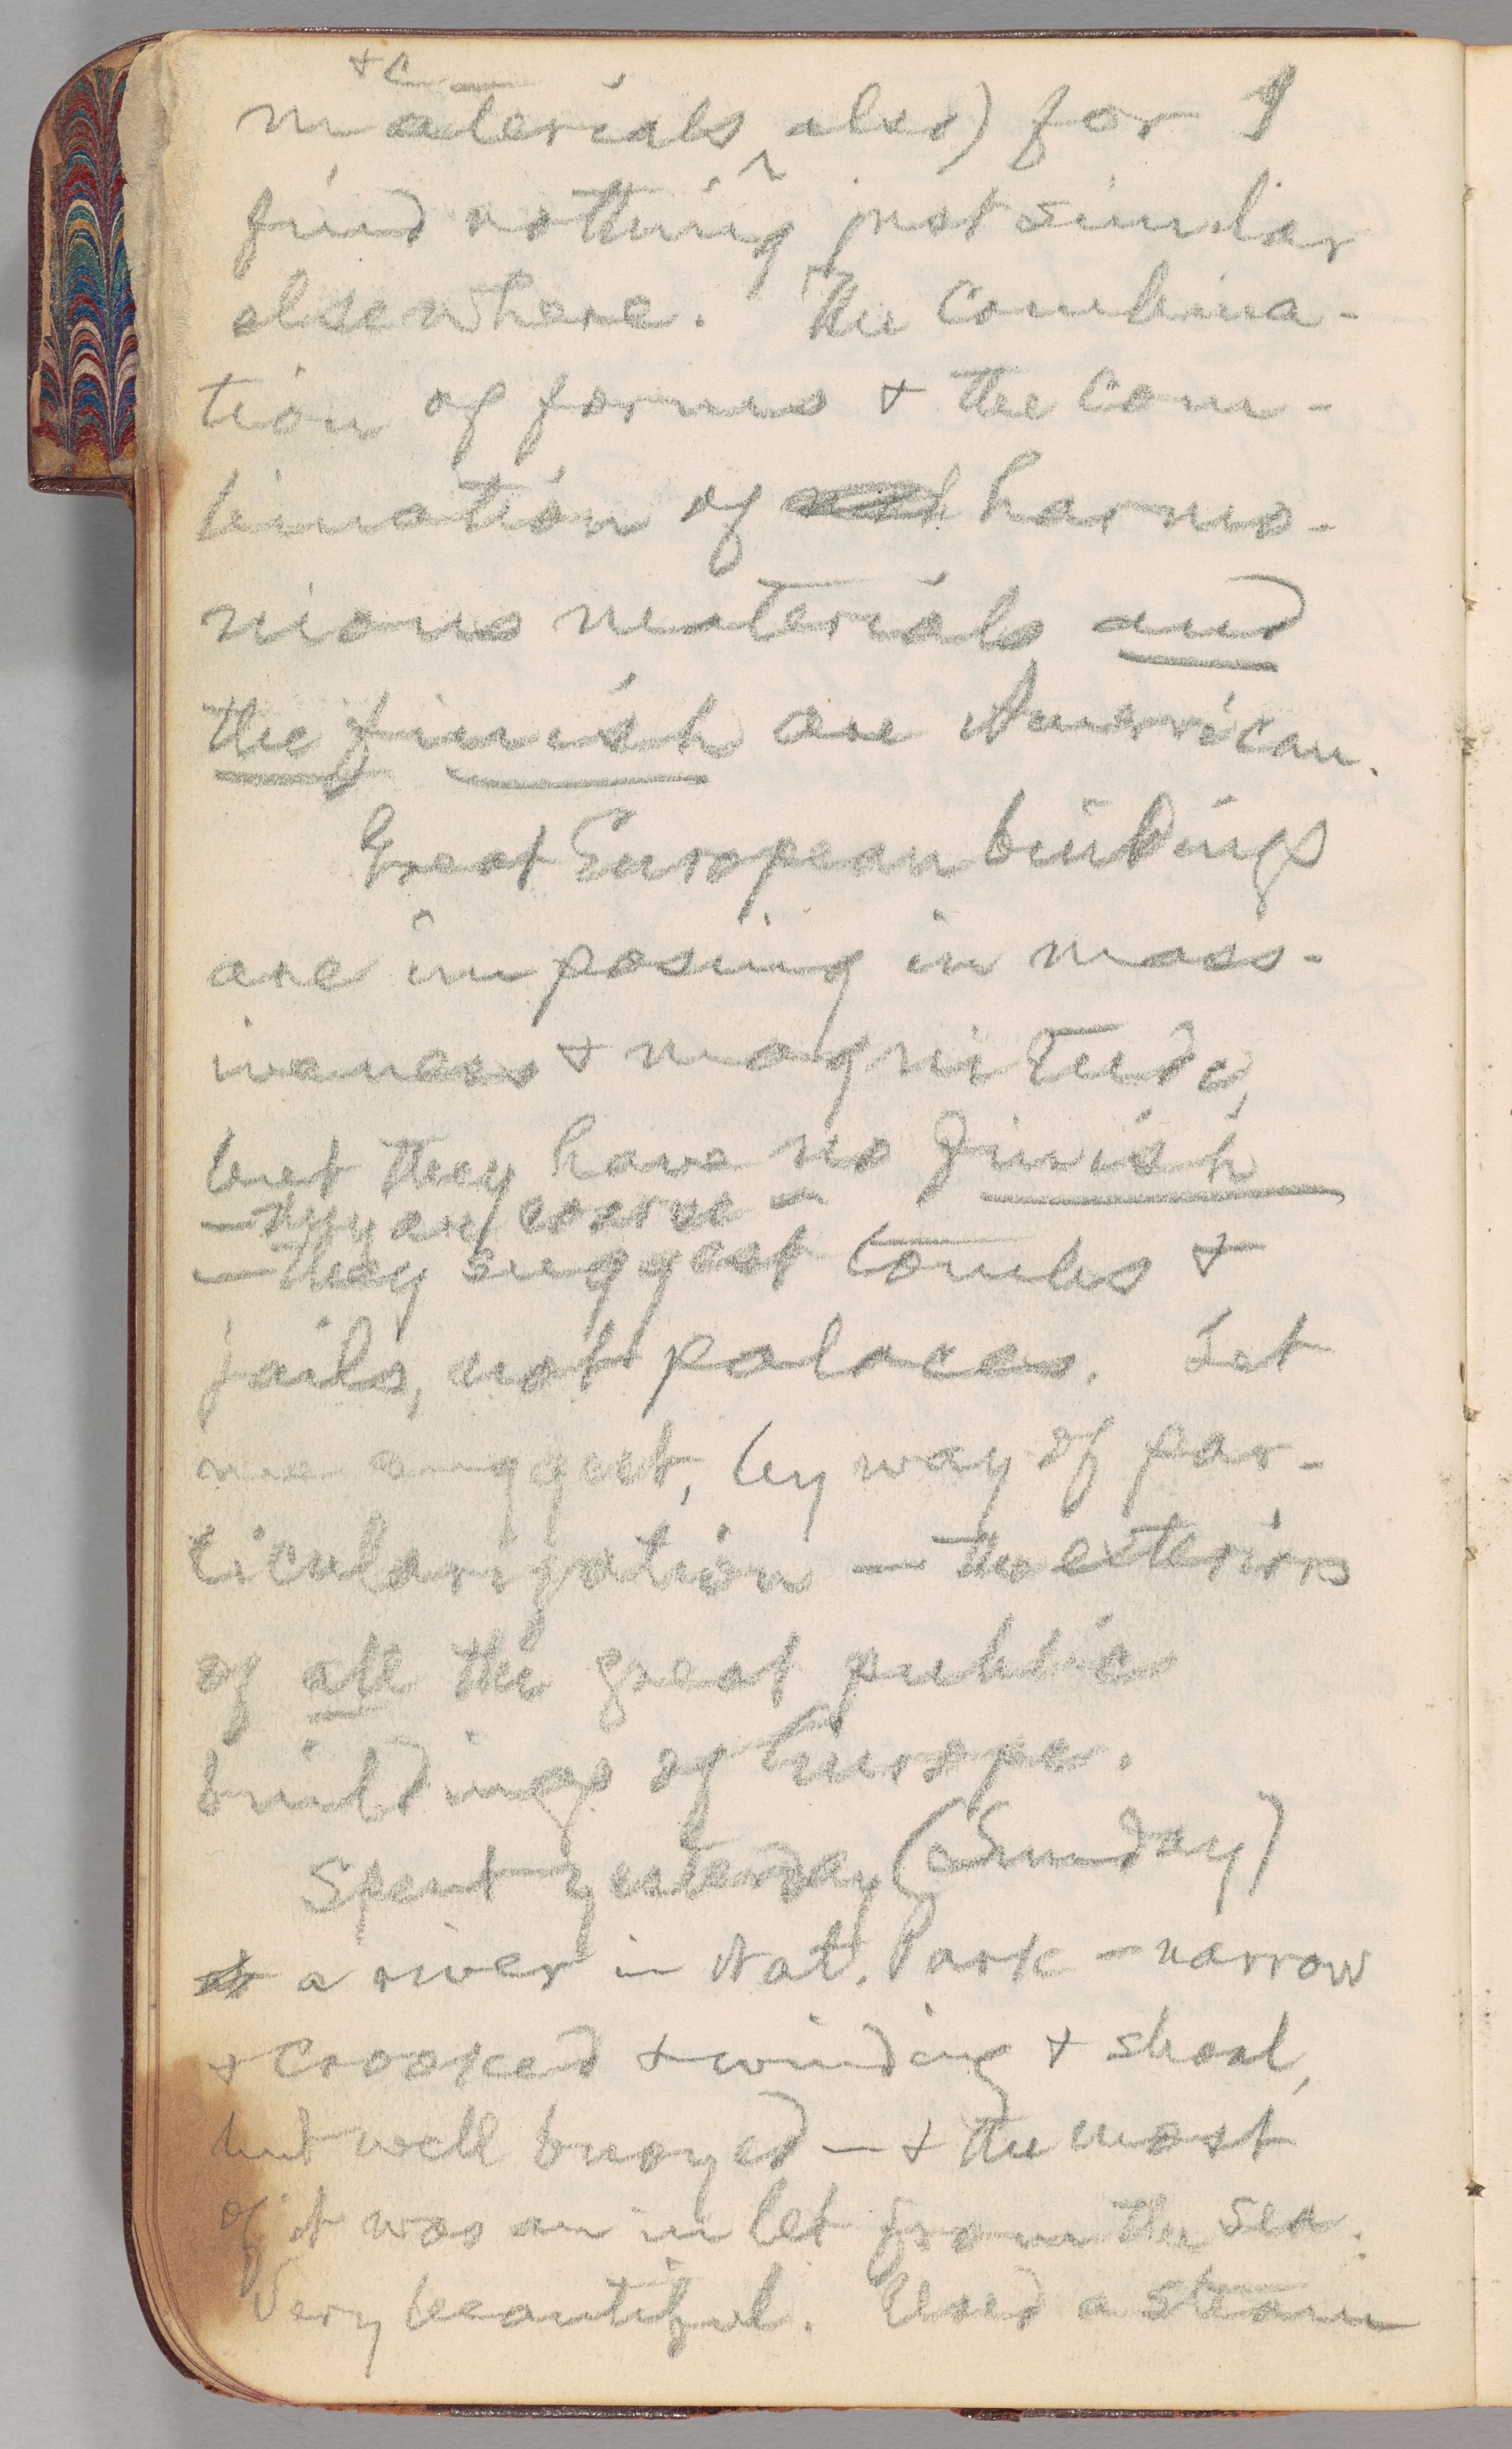 &c
materials ‸ also) for I
find nothing just similar
elsewhere. The combina-
tion of forms & the com-
bination of harmo-
nious materials and
the finish are American.
Great European buildings
are imposing in mass-
iveness & magnitude,
but they have no finish
—they are coarse—
—they suggest tombs &
jails, not palaces. Let
me suggest, by way of par-
ticularization — the exteriors
of all the great public
buildings of Europe.
Spent yesterday (Sunday)
a river in Nat. Park — narrow
& crooked & winding & shoal,
but well buoyed — & the most
of it was an inlet from the sea.
Very beautiful. Used a steam